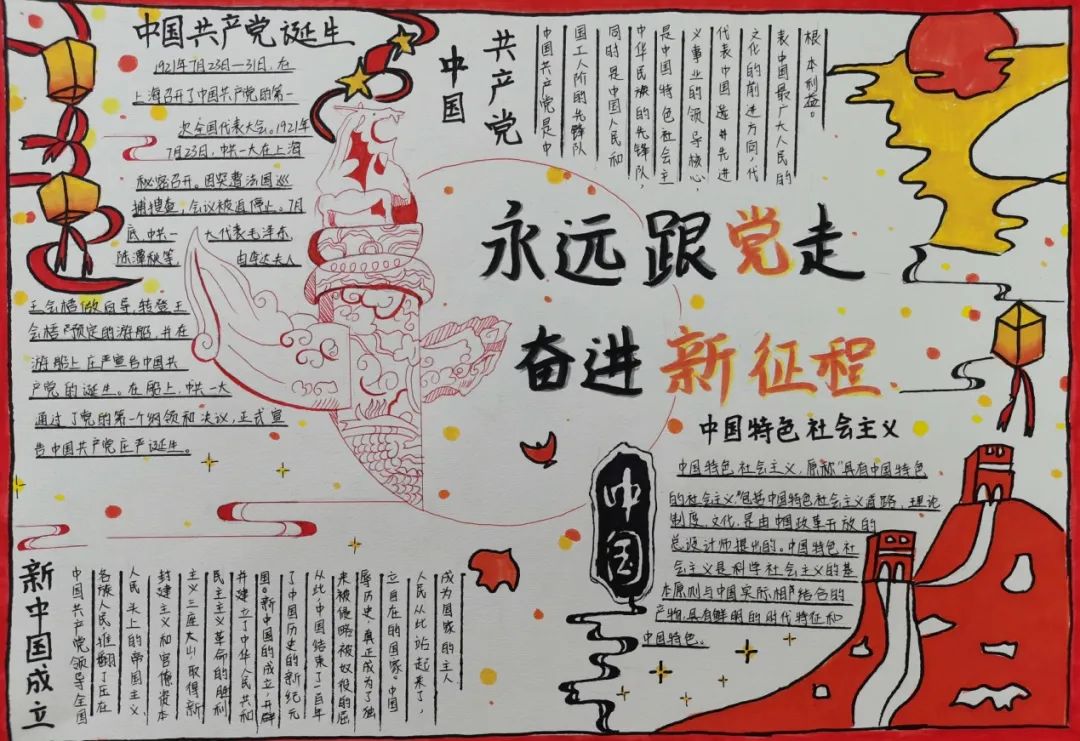 中国共产党诞生
1921年7月23日—31日,在
上海召开了中国共产党的第一
次全国代表大会。1921年
7月23日,中共一大在上海
秘密召开。因突遭法国巡
捕搜查,会议被迫停止。7月
底,中共一 大代表毛泽东,
陈潭秋等, 由李达夫人
王会悟做向导,转登王
会悟预定的游船,并在
游船上庄严宣告中国共
产党的诞生。在船上,中共一大
通过了党的第一个纲领和决议,正式宣
告中国共产党庄严诞生。
共产党
中国
根本利益。
表中国最广大人民的
文化的前进方向,代
代表中国先进
义事业的领导核心,
是中国特色社会主
中华民族的先锋队,
同时是中国人民和
国工人阶的先锋队
中国共产党是中
永远跟党走
奋进新征程
中国特色社会主义
中国特色社会主义,原称"具有中国特色
的社会主义"包括中国特色社会主义道路,理论
制度,文化,是由中国改革开放的
总设计师提出的。中国特色社
会主义是科学社会主义的基
本原则与中国实际相结合的
产物,具有鲜明的时代特征和
中国特色。
中国
新中国成立
中国共产党领导全国
各族人民,推翻了压在
人民头上的帝国主义、
封建主义和官僚资本
主义三座大山,取得新
民主主义革命的胜利
并建立了中华人民共和
国。新中国的成立,开辟
了中国历史的新纪元
从此,中国结束了一百年
来被侵略被奴役的屈
辱历史,真正成为了独
立自在的国家。中国
人民从此站起来了,
成为国家的主人